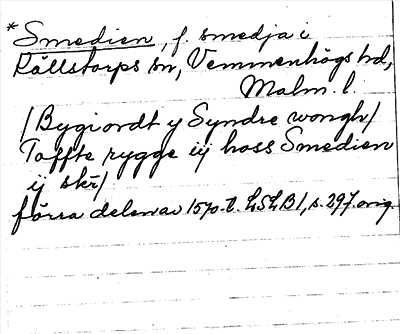 *Smedien, f. smedja i
Källstorps sn, Vemmenhögs hd,
Malm. l.
/Bygiordt y Syndre wongh/
Toffte rygge iij hoss Smedien
ij skr/
förra delen av 1570-t. LSLB1, s. 297. orig.